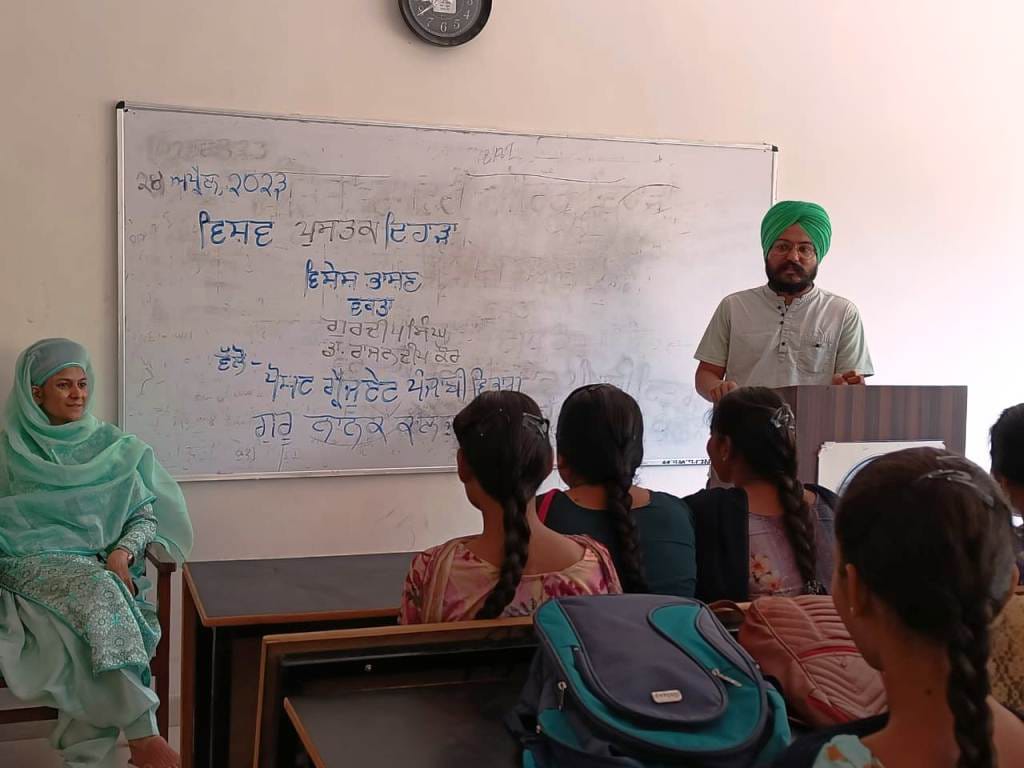 ੨੪ ਅਪ੍ਰੈਲ, ੨੦੨੩
ਵਿਸ਼ਵ ਪੁਸਤਕ ਦਿਹਾੜਾ
ਵਿਸ਼ੇਸ਼ ਭਾਸ਼ਣ
ਵਕਤਾ
ਗੁਰਦੀਪ ਸਿੰਘ
ਡਾ. ਰਾਜਨਦੀਪ ਕੌਰ
ਵੱਲੋਂ -
ਪੋਸਟ ਗ੍ਰੈਜੂਏਟ ਪੰਜਾਬੀ ਵਿਭਾਗ
ਗੁਰੂ ਨਾਨਕ ਕਾਲਜ